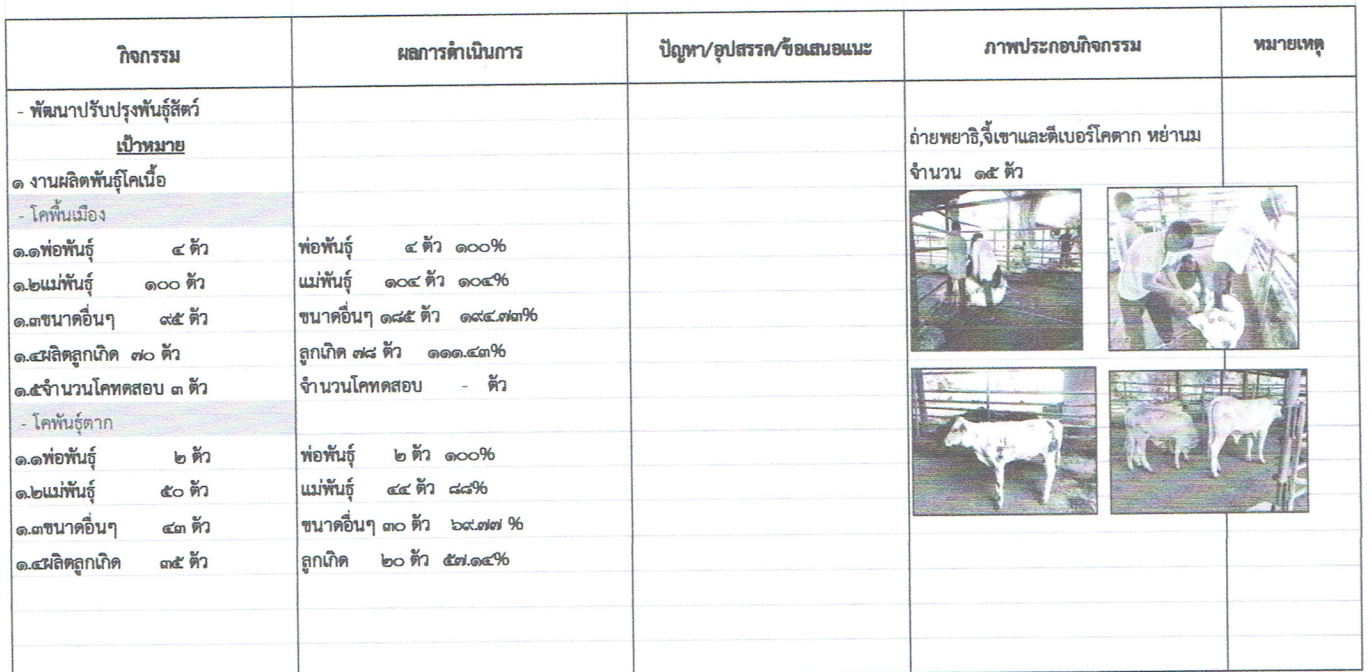 กิจกรรม ผลการดำเนินการ ปัญหา/อุปสรรค/ข้อเสนอแนะ ภาพประกอบกิจกรรม หมายเหตุ
- พัฒนาปรับปรุงพันธุ์สัตว์
เป้าหมาย ถ่ายพยาธิ,จี้เขาและตีเบอร์โคตาก หย่านม
๑ งานผลิตพันธุ์โคเนื้อ จำนวน ๑๕ ตัว
- โคพื้นเมือง
๑.๑พ่อพันธุ์ ๔ ตัว พ่อพันธุ์ ๔ ตัว ๑๐๐%
๑.๒แม่พันธุ์ ๑๐๐ ตัว แม่พันธุ์ ๑๐๔ ตัว ๑๐๔%
๑.๓ขนาดอื่นๆ ๙๕ ตัว ขนาดอื่นๆ ๑๘๕ ตัว ๑๙๔.๗๓%
๑.๔ผลิตลูกเกิด ๗๐ ตัว ลูกเกิด ๗๘ ตัว ๑๑๑.๔๓%
๑.๕จำนวนโคทดสอบ ๓ ตัว จำนวนโคทดสอบ - ตัว
- โคพันธุ์ตาก
๑.๑พ่อพันธุ์ ๒ ตัว พ่อพันธุ์ ๒ ตัว ๑๐๐%
๑.๒แม่พันธุ์ ๕๐ ตัว แม่พันธุ์ ๔๔ ตัว ๘๘%
๑.๓ขนาดอื่นๆ ๔๓ ตัว ขนาดอื่นๆ ๓๐ ตัว ๖๙.๗๗ %
๑.๔ผลิตลูกเกิด ๓๕ ตัว ลูกเกิด ๒๐ ตัว ๕๗.๑๔%